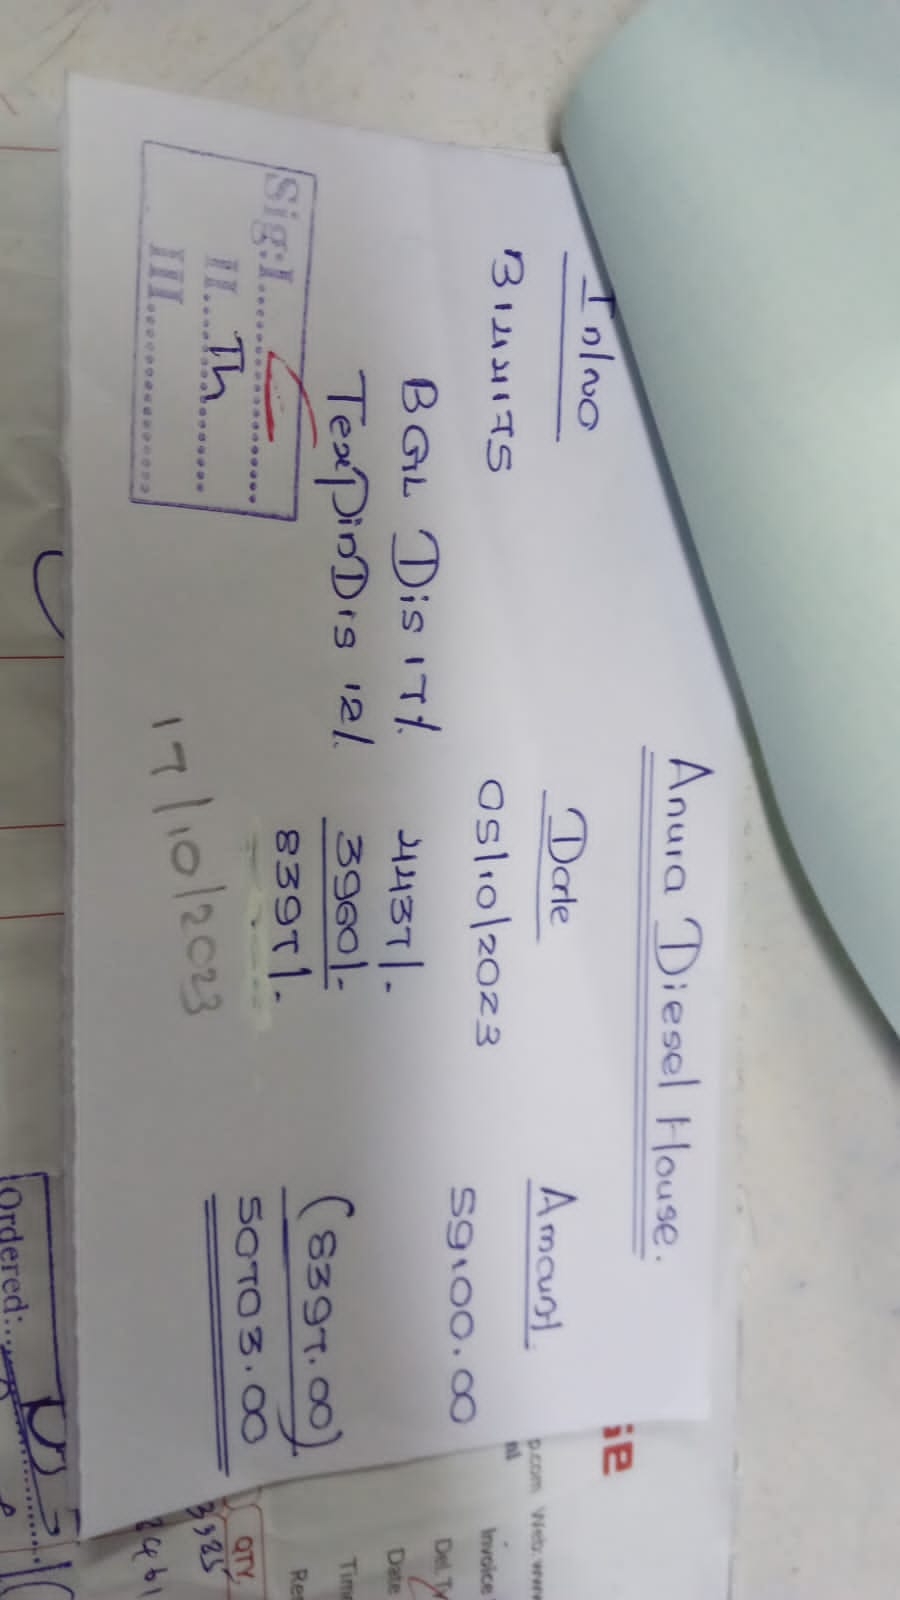 Anura Diesel House.
In/No Date Amount
B144175 05/10/2023 59100.00
BGL Dis 17% 4437/-
TexpinDis 12% 3960/- (8397.00)
8397/- 50703.00
Sig:I....................
II.....Th.............
III....................
17/10/2023
ie
p.com Web: www
Invoice
Del. Ty
Date
Time
QTY
3325
2461
Ordered: